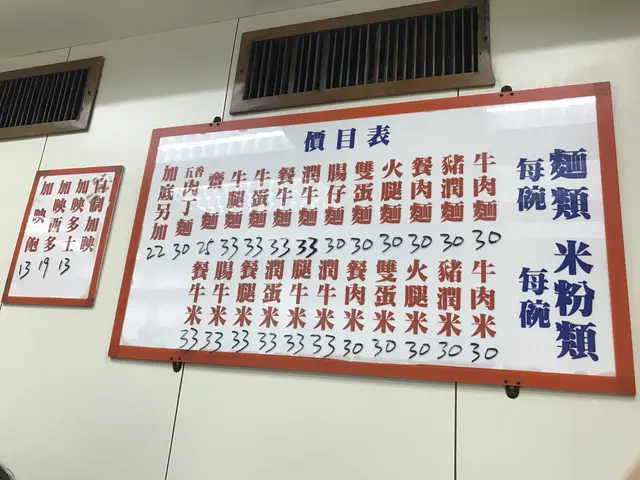 價目表
麵類 每碗
牛肉麵 30
豬潤麵 30
餐肉麵 30
火腿麵 30
雙蛋麵 30
腸仔麵 30
潤牛麵 33
餐牛麵 33
牛蛋麵 33
牛腿麵 33
齋麵 25
五香肉丁麵 30
加底另加 22
米粉類 每碗
牛肉米 30
豬潤米 30
火腿米 30
雙蛋米 30
餐肉米 30
潤牛米 33
腿牛米 33
潤蛋米 33
餐腿米 33
腸牛米 33
餐牛米 33
自制加央
加央多士 13
加央西多 19
加央飽 13